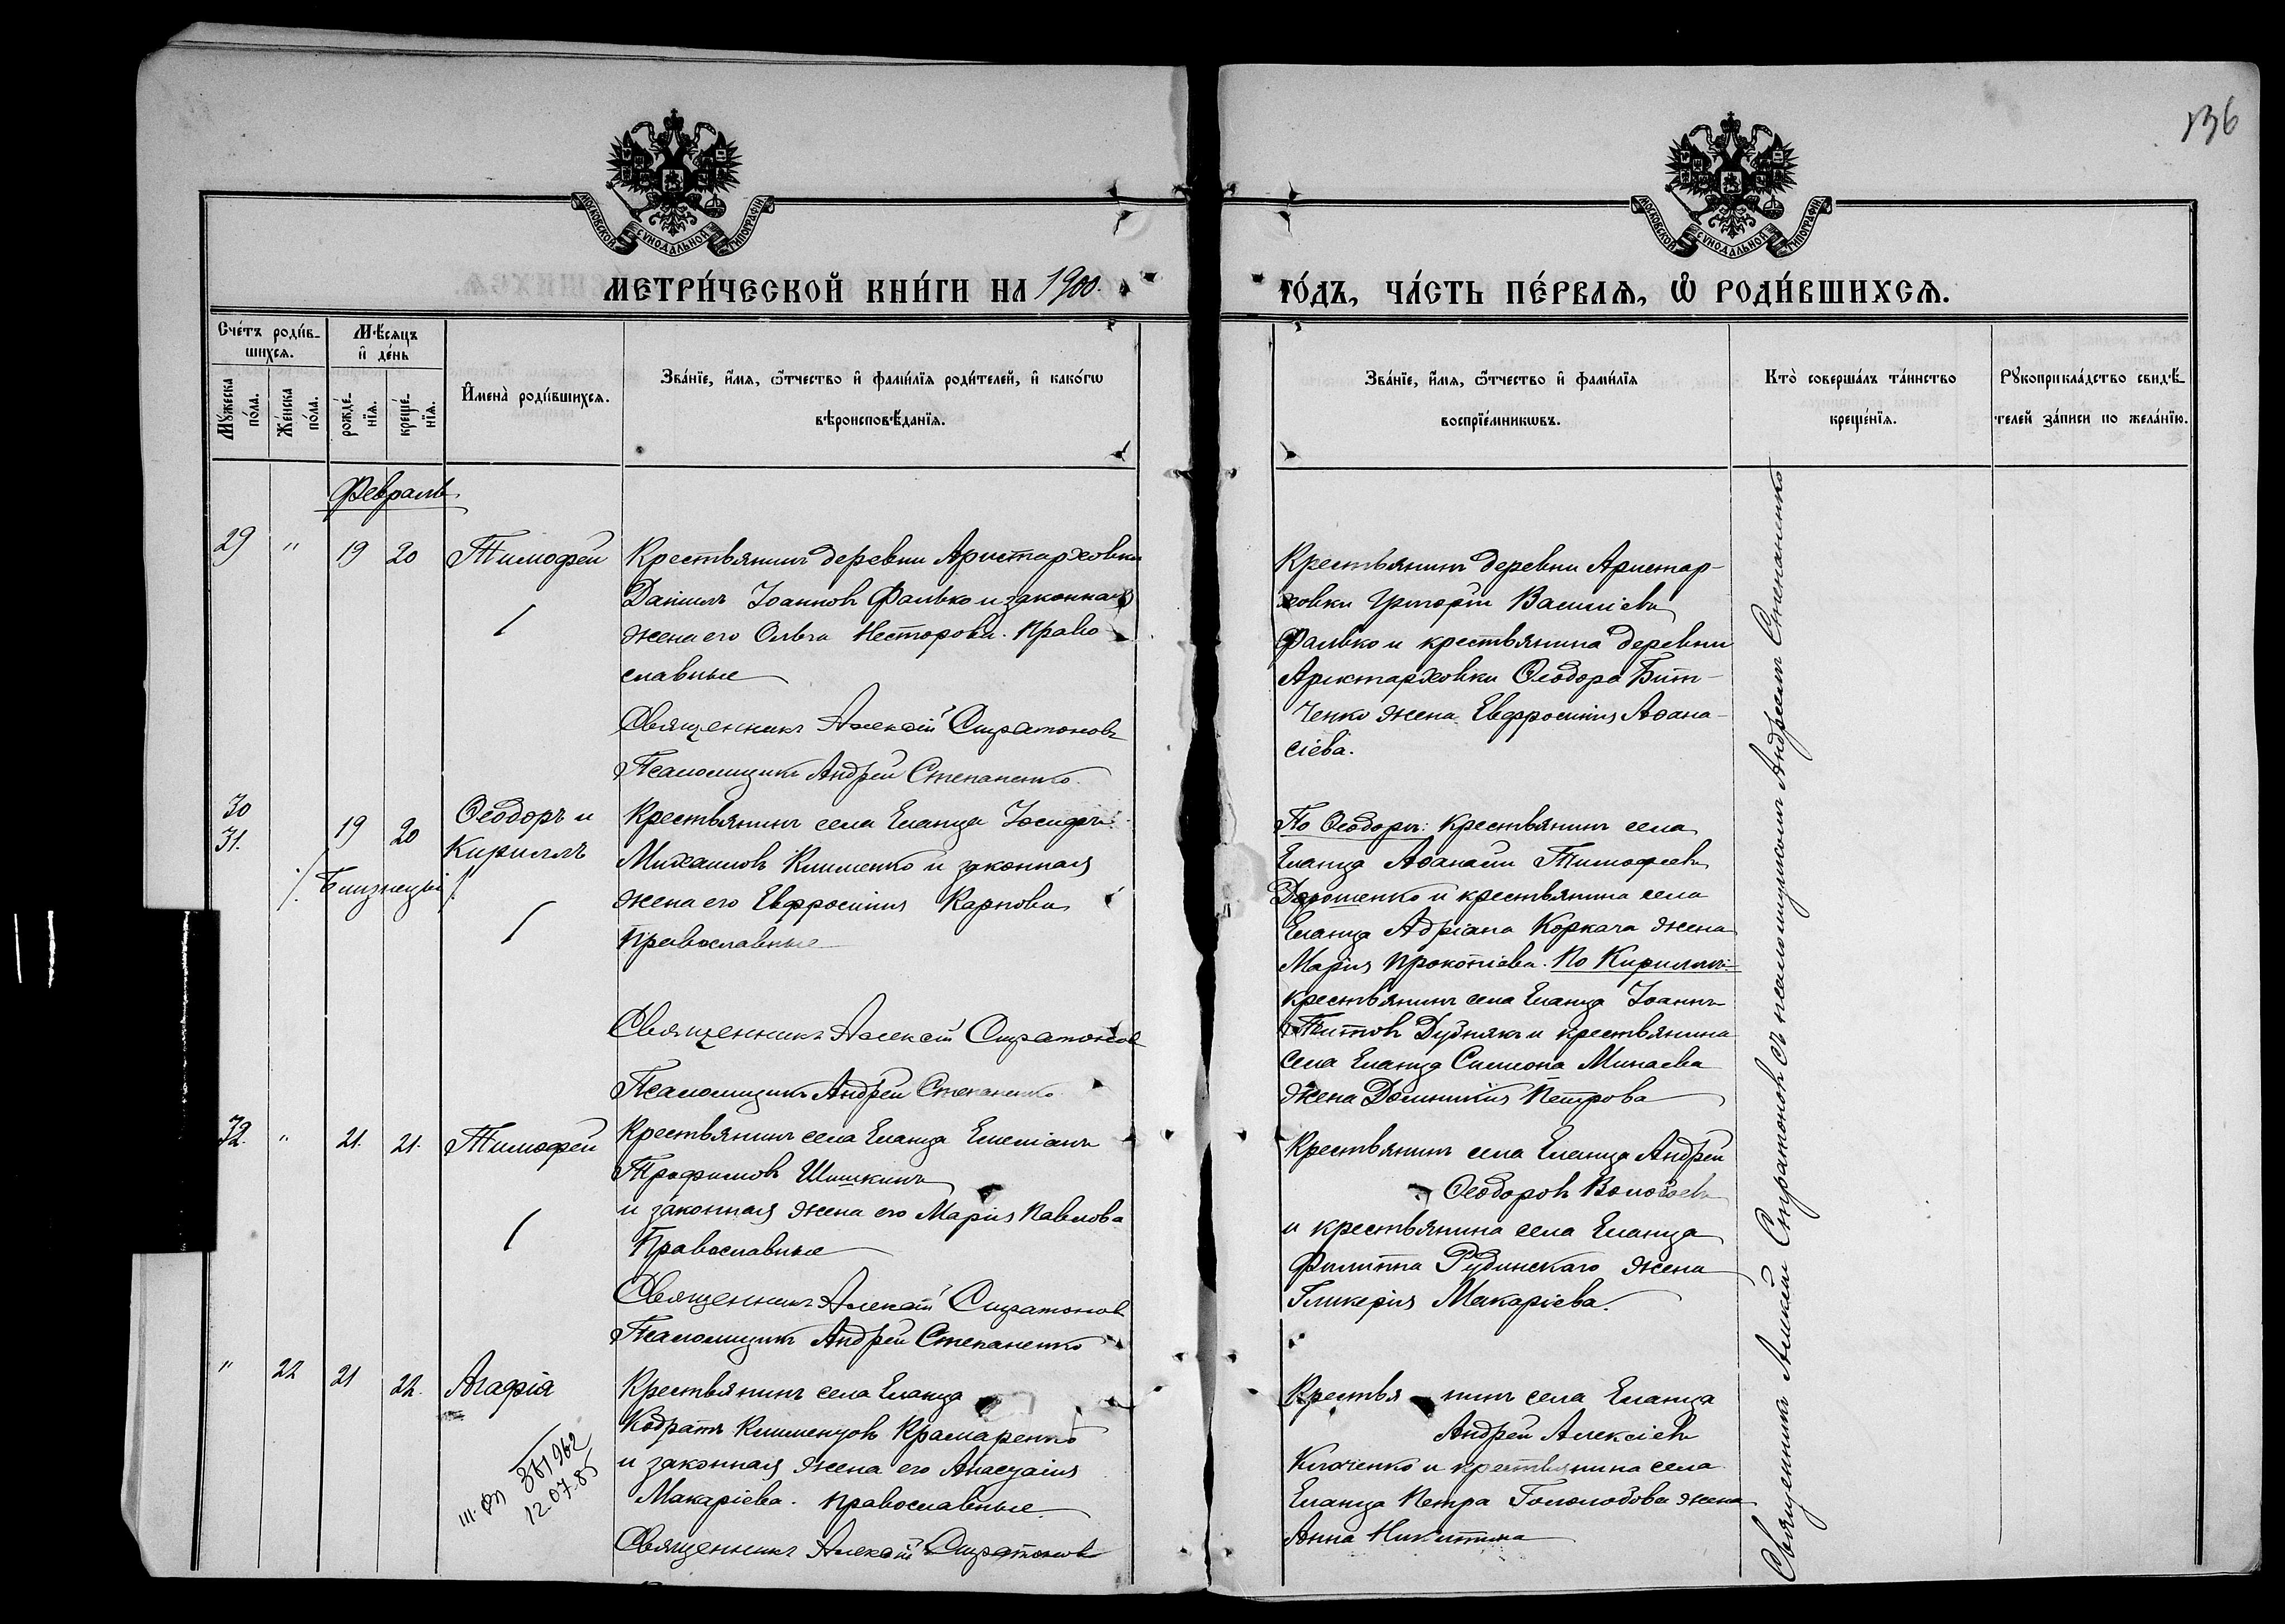 136
МОСКОВСКОЙ СѴНОДАЛЬНОЙ ТИПОГРАФІИ
МОСКОВСКОЙ СѴНОДАЛЬНОЙ ТИПОГРАФІИ
МЕТРИ́ЧЕСКОЙ КНИ́ГИ НА 1900.
ГО́ДЪ, ЧА́СТЬ ПЕ́РВАЯ, Ѡ҆ РОДИ́ВШИХСЯ.
Сче́тъ роди́в-
шихся.
Мꙋ́жеска по́ла.
Же́нска по́ла.
Мѣ́сяцъ
и҆ де́нь
рожде́-нїя.
креще́-нїя.
И҆мена̀ роди́вшихся.
Зва́нїе, и҆́мя, ѻ҆́тчество и҆ фами́лїя роди́телей, и҆ како́гѡ
вѣроисповѣ́данїя.
Зва́нїе, и҆́мя, ѻ҆́тчество и҆ фами́лїя
воспрїе́мникѡвъ.
Кто̀ соверша́лъ та́инство
креще́нїя.
Рꙋкоприкла́дство свидѣ́-
телей за́писи по жела́нїю.
Февраль
29 " 19 20 Тимофей
Крестьянинъ деревни Аристарховки
Даніилъ Іоанновъ Фалько и законная
жена его Ольга Несторова. Право
славные
Священникъ Алексій Стратоновъ
Псаломщикъ Андрей Степаненко
Крестьянинъ деревни Аристар-
ховки Григорій Василіевъ
Фалько и крестьянина деревни
Аристарховки Ѳеодора Бит-
ченко жена Евфросинія Аѳана-
сіева.
30
31. 19 20 Ѳеодоръ и
Кириллъ
Близнецы
Крестьянинъ села Еланца Іосифъ
Михаиловъ Клименко и законная
жена его Евфросинія Карпова
православные
Священникъ Алексій Стратонов
Псаломщикъ Андрей Степаненко
По Ѳеодорѣ: крестьянинъ села
Еланца Аѳанасій Тимофеевъ
Дорошенко и крестьянина села
Еланца Адріана Коркача жена
Марія Прокопіева. По Кириллѣ:
крестьянинъ села Еланца Іоаннъ
Титовъ Дубнякъ и крестьянина
села Еланца Симеона Минаева
жена Домникія Петрова
32. " 21. 21. Тимофей
Крестьянинъ села Еланца Емеліанъ
Трофимовъ Шишкинъ
и законная жена его Марія Павлова
Православные
Священникъ Алексій Стратонов
Псаломщикъ Андрей Степаненко
Крестьянинъ села Еланца Андрей
Ѳеодоровъ
и крестьянина села Еланца
Филиппа Рудинскаго жена
Гликерія Макаріева.
" 22 21 22. Агафія
III. ФП 361962
12.07.85
Крестьянинъ села Еланца
Кодратъ Климентовъ Крамаренко
и законная жена его Анастасія
Макаріева. православные
Священникъ Алексій Стратонов
Крестьянинъ села Еланца
Андрей Алексіевъ
и крестьянина села
Еланца Петра Гололобова жена
Анна Никитина
Священникъ Алексій Стратоновъ съ псаломщикомъ Андреемъ Степаненко